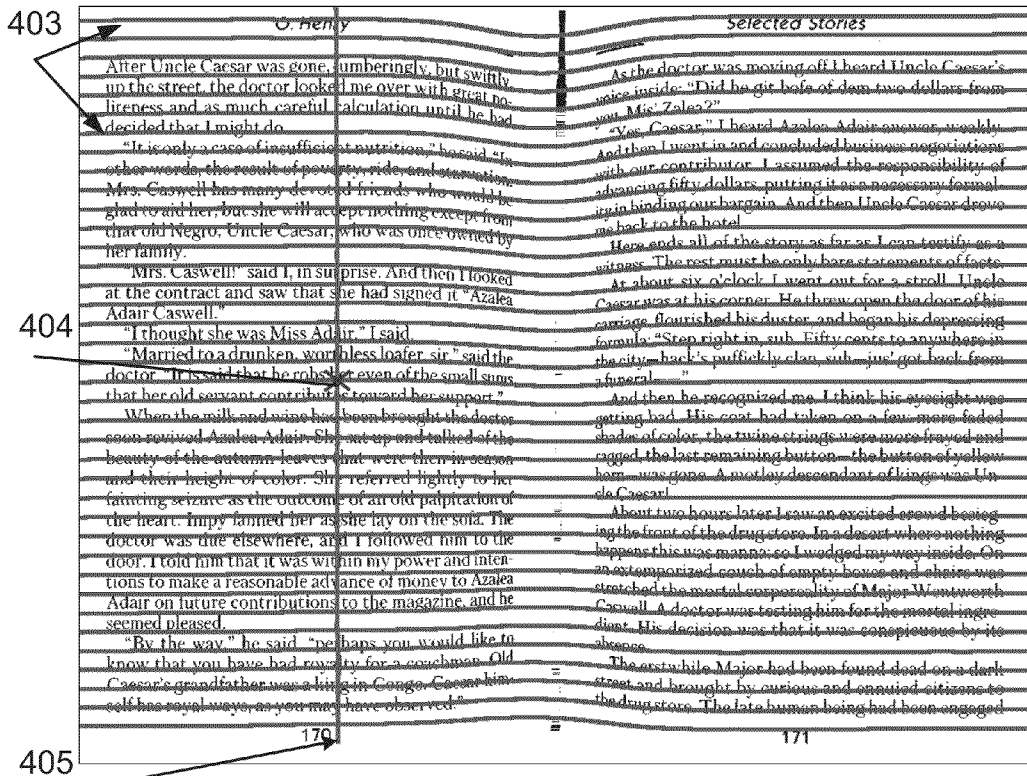 403
O. Henry
After Uncle Caesar was gone, lumberingly, but swiftly,
up the street, the doctor looked me over with great po-
liteness and as much careful calculation until he had
decided that I might do.
"It is only a case of insufficient nutrition," he said. "In
other words, the result of poverty, ride, and starvation.
Mrs. Caswell has many devoted friends who would be
glad to aid her, but she will accept nothing except from
that old Negro, Uncle Caesar, who was once owned by
her family.
"Mrs. Caswell!" said I, in surprise. And then I looked
at the contract and saw that she had signed it "Azalea
Adair Caswell."
404
"I thought she was Miss Adair," I said.
"Married to a drunken, worthless loafer, sir," said the
doctor. "It is said that he robs her even of the small sums
that her old servant contributes toward her support."
When the milk and wine had been brought the doctor
soon revived Azalea Adair. She sat up and talked of the
beauty of the autumn leaves that were then in season
and their height of color. She referred lightly to her
fainting seizure as the outcome of an old palpitation of
the heart. Impy fanned her as she lay on the sofa. The
doctor was due elsewhere, and I followed him to the
door. I told him that it was within my power and inten-
tions to make a reasonable advance of money to Azalea
Adair on future contributions to the magazine, and he
seemed pleased.
"By the way," he said, "perhaps you would like to
know that you have had royalty for a coachman. Old
Caesar's grandfather was a king in Congo. Caesar him-
self has royal ways, as you may have observed."
170
405
Selected Stories
As the doctor was moving off I heard Uncle Caesar's
voice inside: "Did he git bofe of dem two dollars from
you, Mis' Zalea?"
"Yes, Caesar," I heard Azalea Adair answer, weakly.
And then I went in and concluded business negotiations
with our contributor. I assumed the responsibility of
advancing fifty dollars, putting it as a necessary formal-
ity in binding our bargain. And then Uncle Caesar drove
me back to the hotel.
Here ends all of the story as far as I can testify as a
witness. The rest must be only bare statements of facts.
At about six o'clock I went out for a stroll. Uncle
Caesar was at his corner. He threw open the door of his
carriage, flourished his duster, and began his depressing
formula: "Step right in, suh. Fifty cents to anywhere in
the city—hack's puffickly clan, suh—jus' got back from
a funeral——"
And then he recognized me. I think his eyesight was
getting bad. His coat had taken on a few more faded
shades of color, the twine strings were more frayed and
ragged, the last remaining button—the button of yellow
horn—was gone. A motley descendant of kings was Un-
cle Caesar!
About two hours later I saw an excited crowd besieg-
ing the front of the drug store. In a desert where nothing
happens this was manna; so I wedged my way inside. On
an extemporized couch of empty boxes and chairs was
stretched the mortal corporeality of Major Wentworth
Caswell. A doctor was testing him for the mortal ingre-
dient. His decision was that it was conspicuous by its
absence.
The erstwhile Major had been found dead on a dark
street and brought by curious and ennuied citizens to
the drug store. The late human being had been engaged
171